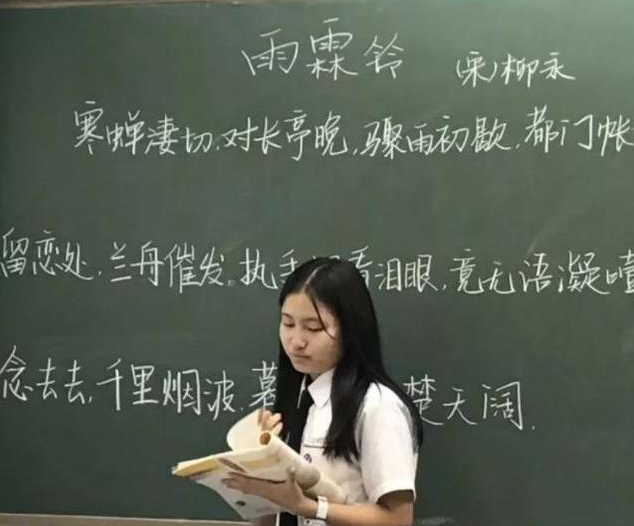 雨霖铃 (宋)柳永
寒蝉凄切,对长亭晚,骤雨初歇,都门帐
留恋处,兰舟催发。执手 看泪眼,竟无语凝噎
念去去,千里烟波,暮 楚天阔.